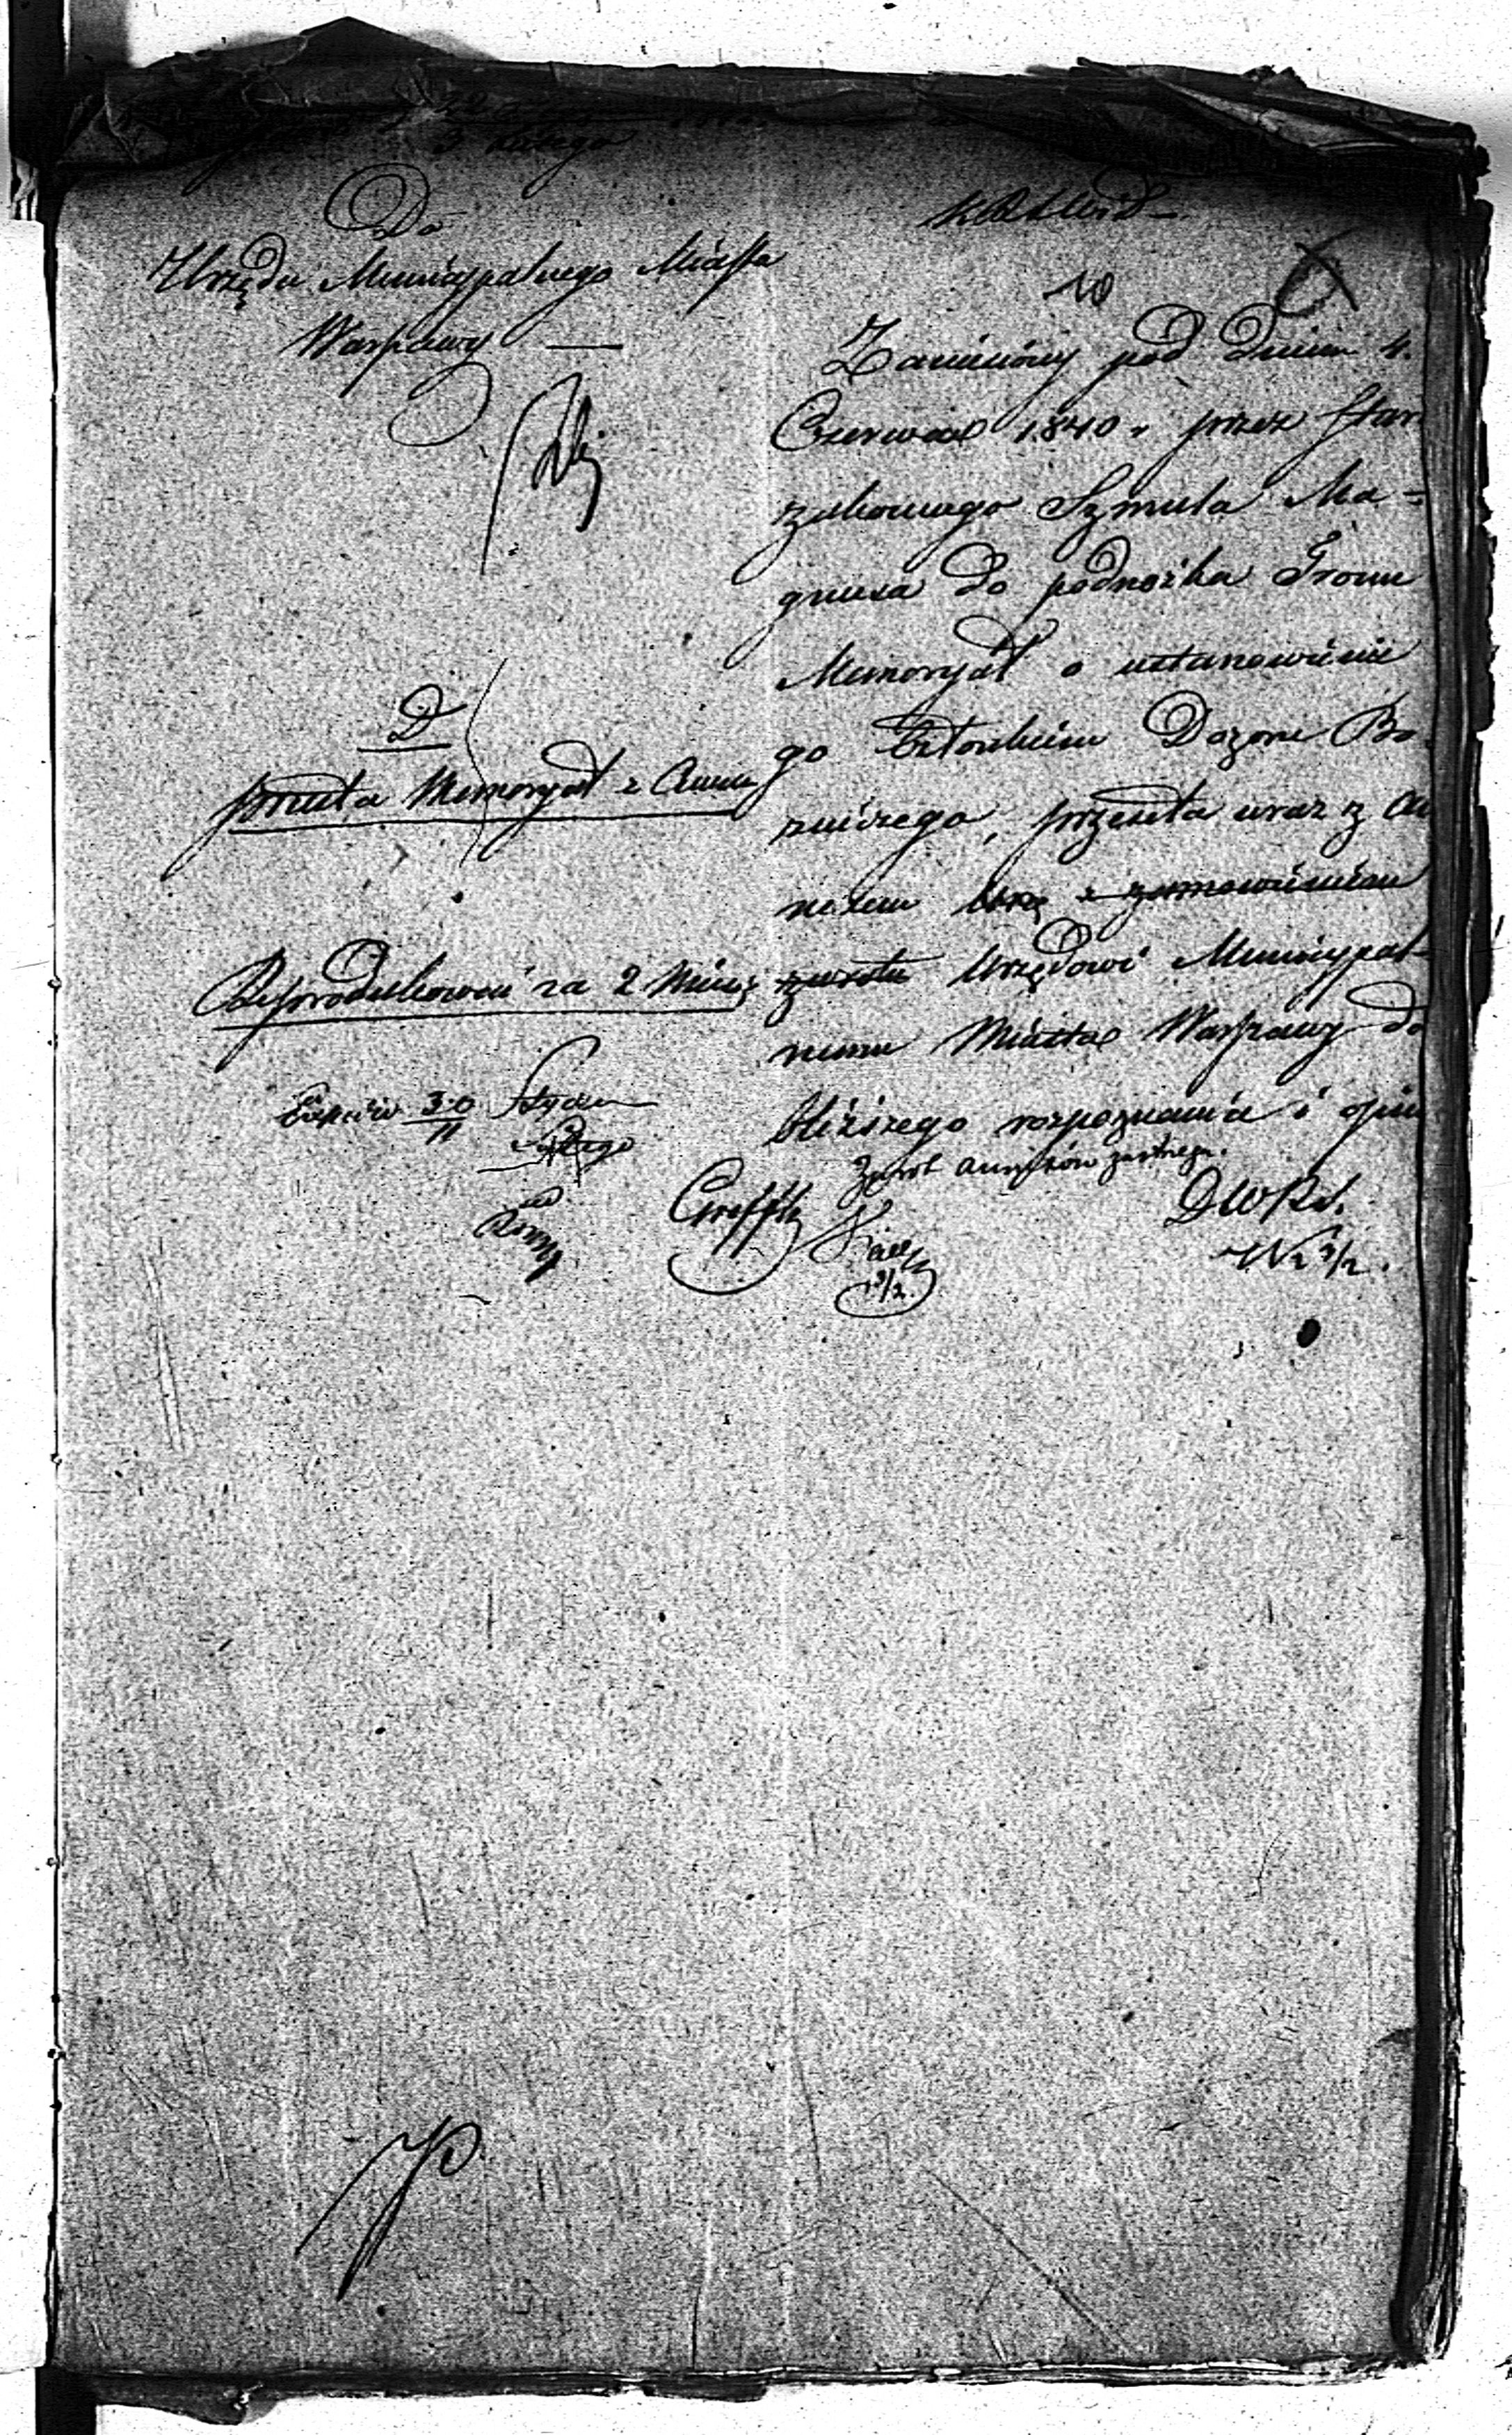 22
3 Lutego
Do
Urzędu Municypalnego Miasta
Warszawy —
D
pszła Memoryał z Annex
Reprodukować za 2 Miesią
30 Stycz
11 Lutego
KRSWiD
10
Zaniesiony pod dniem 4.
Czerwca 1840 r przez Star
zakonnego Szmula Ma=
gnusa do podnóżka Tronu
Memoryał o ustanowienie
go Członkiem Dozoru Bo
żniczego, przesyła wraz z An
nexem Urzę z zamówieniem
zwrotu Urzędowi Municypal-
nemu Miasta Warszawy do
bliższego rozpoznania i opin
Zwrot annexów zastrzega.
DWRel.
3/2.